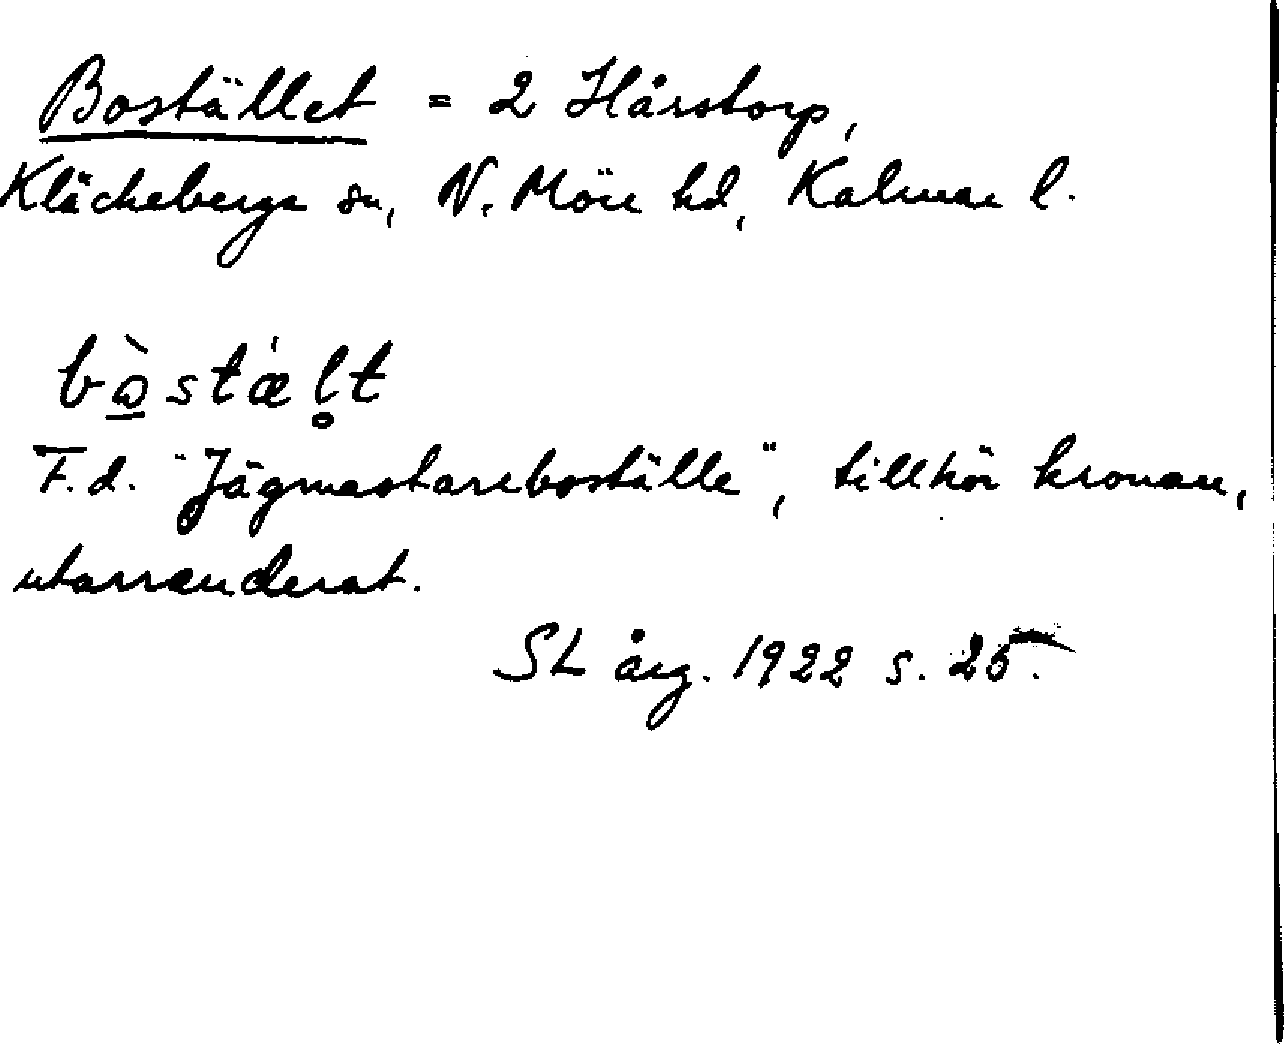 Bostället = 2 Hårstorp,
Kläckeberga sn, N. Möre hd, Kalmar l.
bòstæ̀l̥t
F.d. "Jägmastareboställe", tillhör kronan,
utarrenderat.
SL årg. 1922 s. 25.